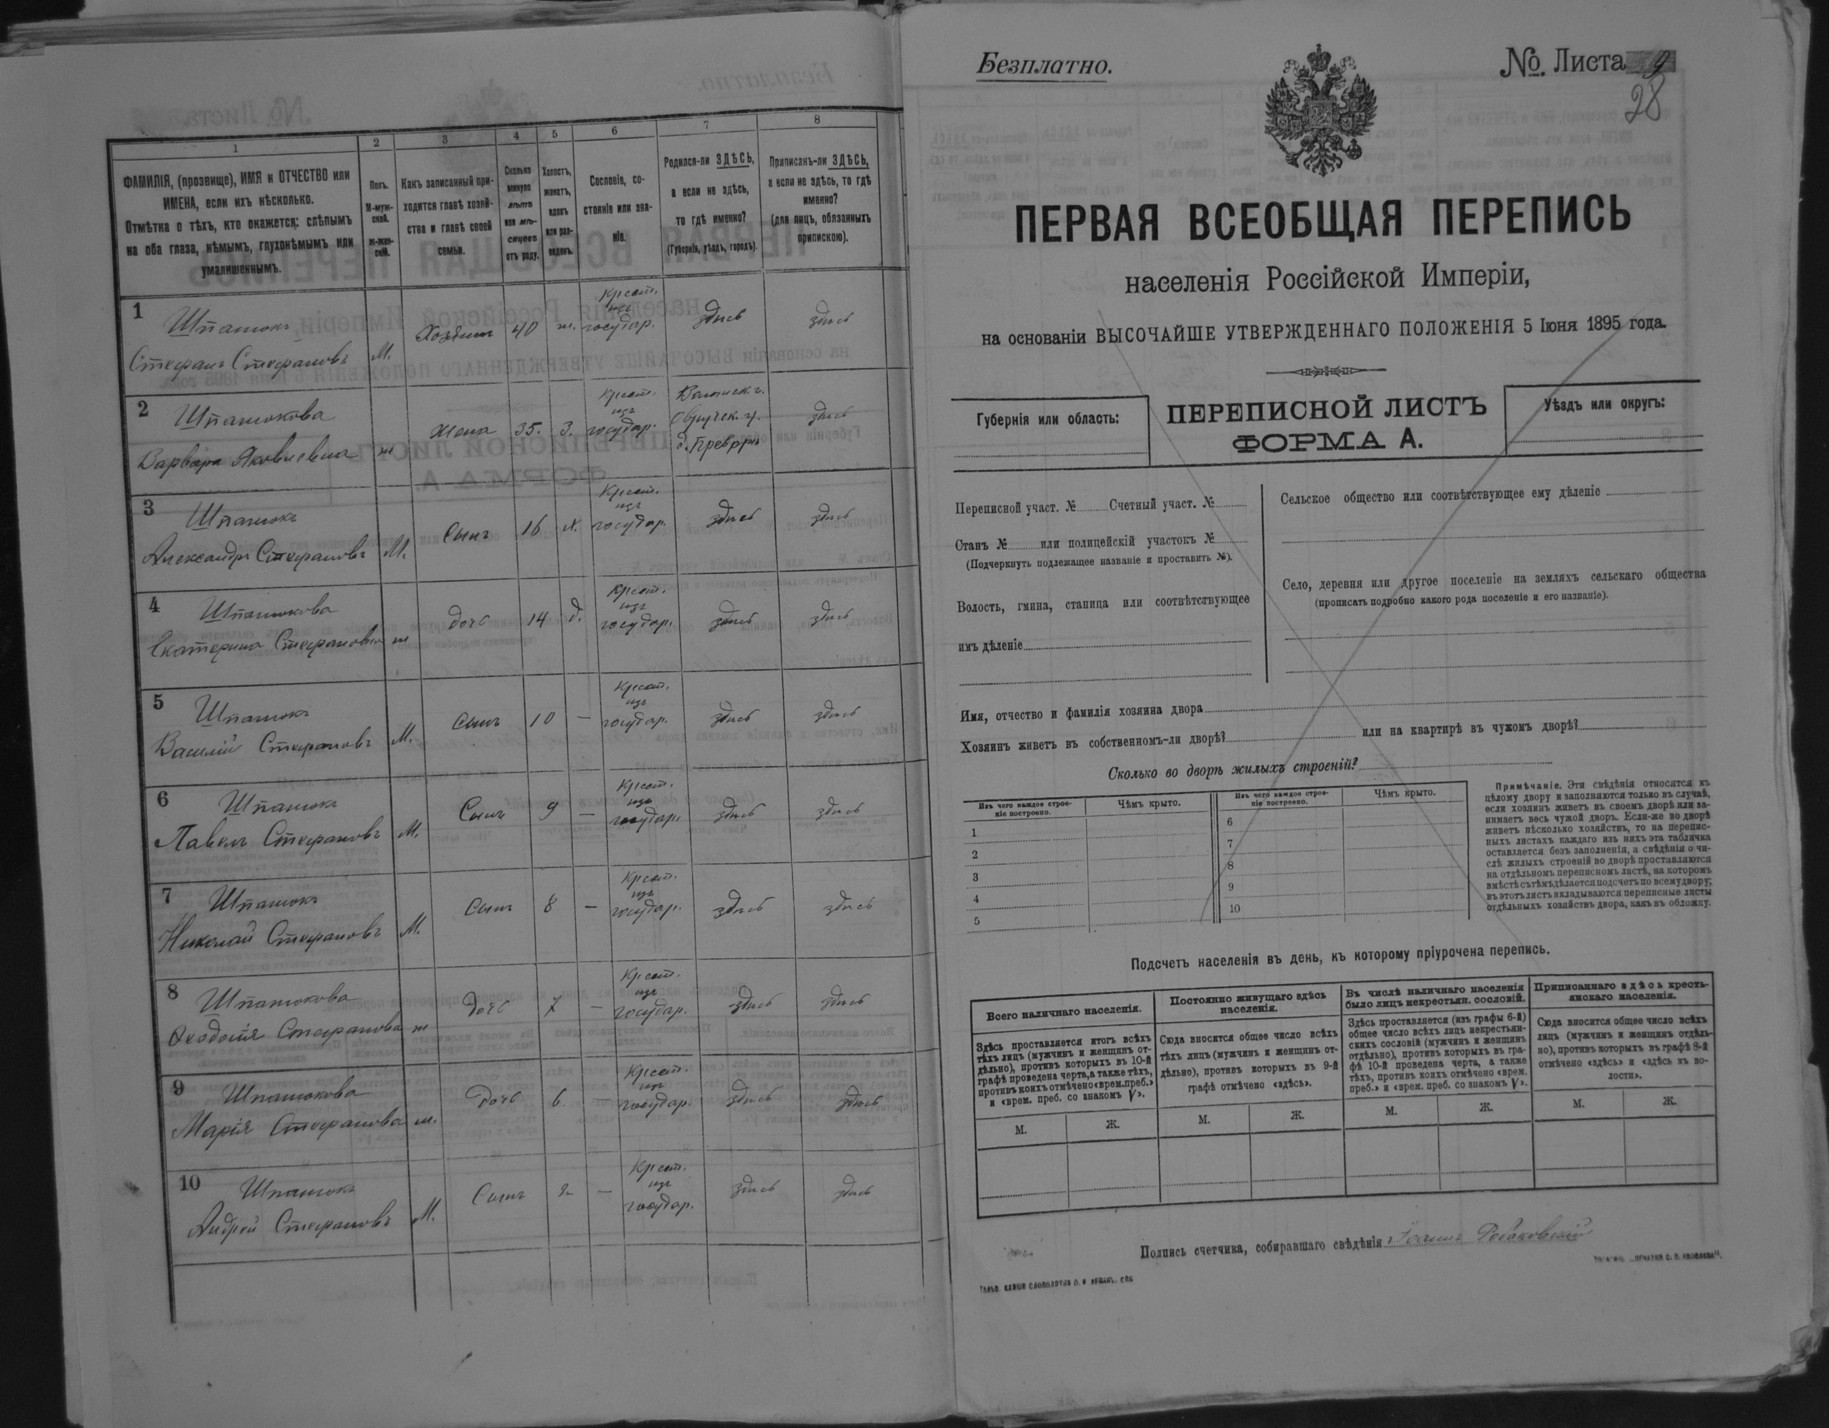 1
2
3
4
5
6
7
8
ФАМИЛІЯ, (прозвище), ИМЯ и ОТЧЕСТВО или
ИМЕНА, если ихъ нѣсколько.
Отмѣтка о тѣхъ, кто окажется: слѣпымъ
на оба глаза, нѣмымъ, глухонѣмымъ или
умалишеннымъ.
Полъ.
М-муж-
ской.
ж-жен-
скій.
Какъ записанный при-
ходится главѣ хозяй-
ства и главѣ своей
семьи.
Сколько
минуло
лѣтъ
или мѣ-
сяцевъ
отъ роду.
Холостъ,
женатъ,
вдовъ
или раз-
веденъ.
Сословіе, со-
стояніе или зва-
ніе.
Родился-ли ЗДѢСЬ,
а если не здѣсь,
то гдѣ именно?
(Губернія, уѣздъ, городъ).
Приписанъ-ли ЗДѢСЬ,
а если не здѣсь, то гдѣ
именно?
(для лицъ, обязанныхъ
припискою).
1
Шпатюкъ
Стефанъ Стефановъ
М.
Хозяинъ
40
ж.
крест.
изъ
государ.
здѣсь
здѣсь
2
Шпатюкова
Варвара Яковлевна
ж
жена
35.
З.
крест.
изъ
государ.
Волынск. г.
Овручск. у.
здѣсь
3
Шпатюкъ
Александръ Стефановъ
М.
Сынъ
16
х.
крест.
изъ
государ.
здѣсь
здѣсь
4
Шпатюкова
Екатерина Стефановна
ж
дочь
14
д.
крест.
изъ
государ.
здѣсь
здѣсь
5
Шпатюкъ
Василій Стефановъ
М.
Сынъ
10
—
крест.
изъ
государ.
здѣсь
здѣсь
6
Шпатюкъ
Павелъ Стефановъ
М.
Сынъ
9
—
крест.
изъ
государ.
здѣсь
здѣсь
7
Шпатюкъ
Николай Стефановъ
М.
Сынъ
8
—
крест.
изъ
государ.
здѣсь
здѣсь
8
Шпатюкова
Ѳеодосія Стефанова
ж
дочь
7
—
крест.
изъ
государ.
здѣсь
здѣсь
9
Шпатюкова
Марія Стефанова
ж.
дочь
6
—
крест.
изъ
государ.
здѣсь
здѣсь
10
Шпатюкъ
Андрей Стефановъ
М.
Сынъ
2
—
крест.
изъ
государ.
здѣсь
здѣсь
Безплатно.
№ Листа 9
28
ПЕРВАЯ ВСЕОБЩАЯ ПЕРЕПИСЬ
населенія Россійской Имперіи,
на основаніи ВЫСОЧАЙШЕ УТВЕРЖДЕННАГО ПОЛОЖЕНІЯ 5 Іюня 1895 года.
Губернія или область:
ПЕРЕПИСНОЙ ЛИСТЪ
ФОРМА А.
Уѣздъ или округъ:
Переписной участ. № Счетный участ. №
Станъ № или полицейскій участокъ №
(Подчеркнуть подлежащее названіе и проставить №).
Волость, гмина, станица или соотвѣтствующее
имъ дѣленіе
Сельское общество или соотвѣтствующее ему дѣленіе
Село, деревня или другое поселеніе на земляхъ сельскаго общества
(прописать подробно какого рода поселеніе и его названіе).
Имя, отчество и фамилія хозяина двора
Хозяинъ живетъ въ собственномъ-ли дворѣ? или на квартирѣ въ чужомъ дворѣ?
Сколько во дворѣ жилыхъ строеній?
Изъ чего каждое строе-
ніе построено.
Чѣмъ крыто.
Изъ чего каждое строе-
ніе построено.
Чѣмъ крыто.
1
2
3
4
5
6
7
8
9
10
Примѣчаніе. Эти свѣдѣнія относятся къ
цѣлому двору и заполняются только въ случаѣ,
если хозяинъ живетъ въ своемъ дворѣ или за-
нимаетъ весь чужой дворъ. Если-же во дворѣ
живетъ нѣсколько хозяйствъ, то на перепис-
ныхъ листахъ каждаго изъ нихъ эта табличка
оставляется безъ заполненія, а свѣдѣнія о чи-
слѣ жилыхъ строеній во дворѣ проставляются
на отдѣльномъ переписномъ листѣ, на которомъ
вмѣстѣ съ тѣмъ дѣлается подсчетъ по всему двору;
въ этотъ листъ вкладываются переписные листы
отдѣльныхъ хозяйствъ двора, какъ въ обложку.
Подсчетъ населенія въ день, къ которому пріурочена перепись.
Всего наличнаго населенія.
Постоянно живущаго здѣсь
населенія.
Въ числѣ наличнаго населенія
было лицъ некрестьян. сословій.
Приписаннаго здѣсь кресть-
янскаго населенія.
Здѣсь проставляется итогъ всѣхъ
тѣхъ лицъ (мужчинъ и женщинъ от-
дѣльно), противъ которыхъ въ 10-й
графѣ проведена черта, а также тѣхъ,
противъ коихъ отмѣчено «врем. преб.»
и «врем. преб. со знакомъ V».
Сюда вносится общее число всѣхъ
тѣхъ лицъ (мужчинъ и женщинъ от-
дѣльно), противъ которыхъ въ 9-й
графѣ отмѣчено «здѣсь».
Здѣсь проставляется (изъ графы 6-й)
общее число всѣхъ лицъ некрестьян-
скихъ сословій (мужчинъ и женщинъ
отдѣльно), противъ которыхъ въ гра-
фѣ 10-й проведена черта, а также
тѣхъ, противъ коихъ отмѣчено «врем.
преб.» и «врем. преб. со знакомъ V».
Сюда вносится общее число всѣхъ
лицъ (мужчинъ и женщинъ отдѣль-
но), противъ которыхъ въ графѣ 8-й
отмѣчено «здѣсь» и «здѣсь въ во-
лости».
М.
Ж.
М.
Ж.
М.
Ж.
М.
Ж.
Подпись счетчика, собиравшаго свѣдѣнія